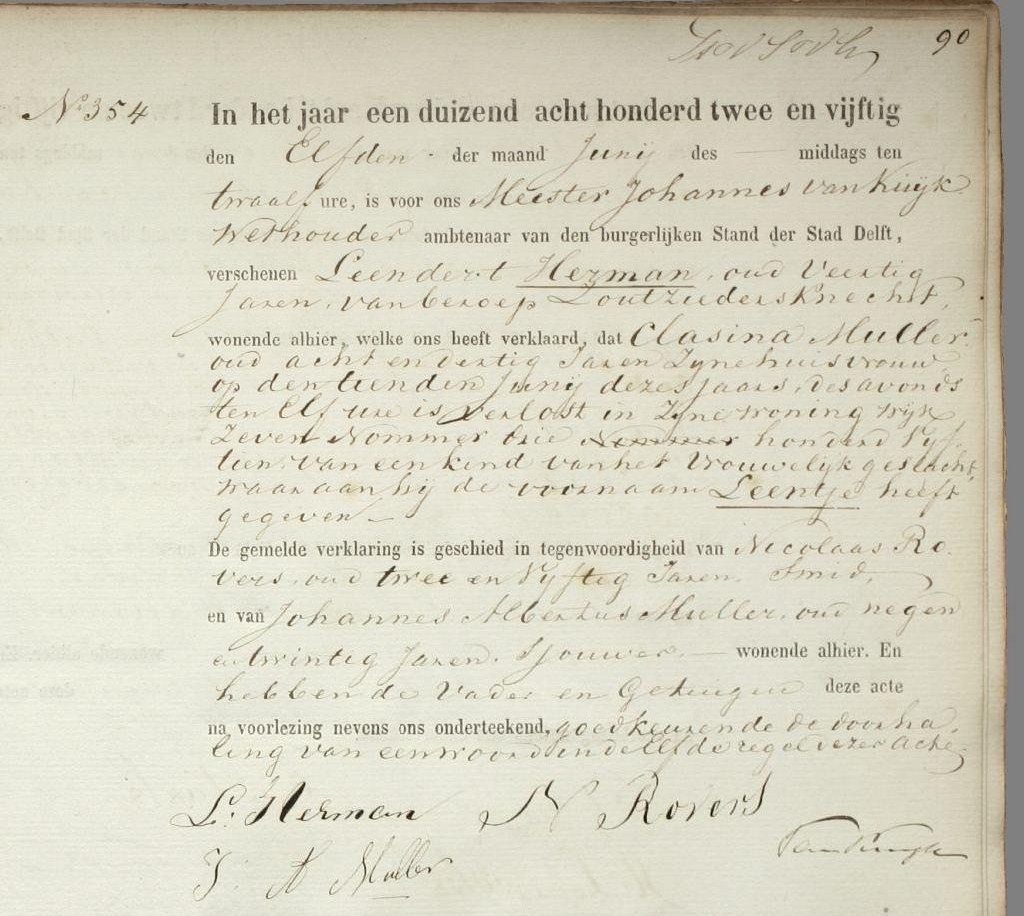 90
No 354
In het jaar een duizend acht honderd twee en vijftig
den Elfden der maand Junij des — middags ten
twaalf ure, is voor ons Meester Johannes van Kuijk
Wethouder ambtenaar van den burgerlijken Stand der Stad Delft,
verschenen Leendert Herman, oud Veertig
Jaren, van beroep Zoutziedersknecht,
wonende alhier, welke ons heeft verklaard, dat Clasina Muller
oud acht en dertig Jaren Zyne huisvrouw
op den tienden Junij dezes jaars, des avonds
ten Elf ure is verlost in Zyne woning wijk
Zeven Nommer drie Nommer honderd Vyf-
tien, van een kind van het Vrouwelijk geslacht,
waaraan hij de voornaam Leentje heeft
gegeven —
De gemelde verklaring is geschied in tegenwoordigheid van Nicolaas Ro-
vers, oud twee en Vyftig Jaren, Smid,
en van Johannes Albertus Muller, oud negen
en twintig Jaren, Sjouwer, — wonende alhier. En
hebben de Vader en Getuigen deze acte
na voorlezing nevens ons onderteekend, goedkeurende de doorha-
ling van een woord in de elfde regel dezer acte.
L. Herman N Rovers
J A Muller
van Kuijk